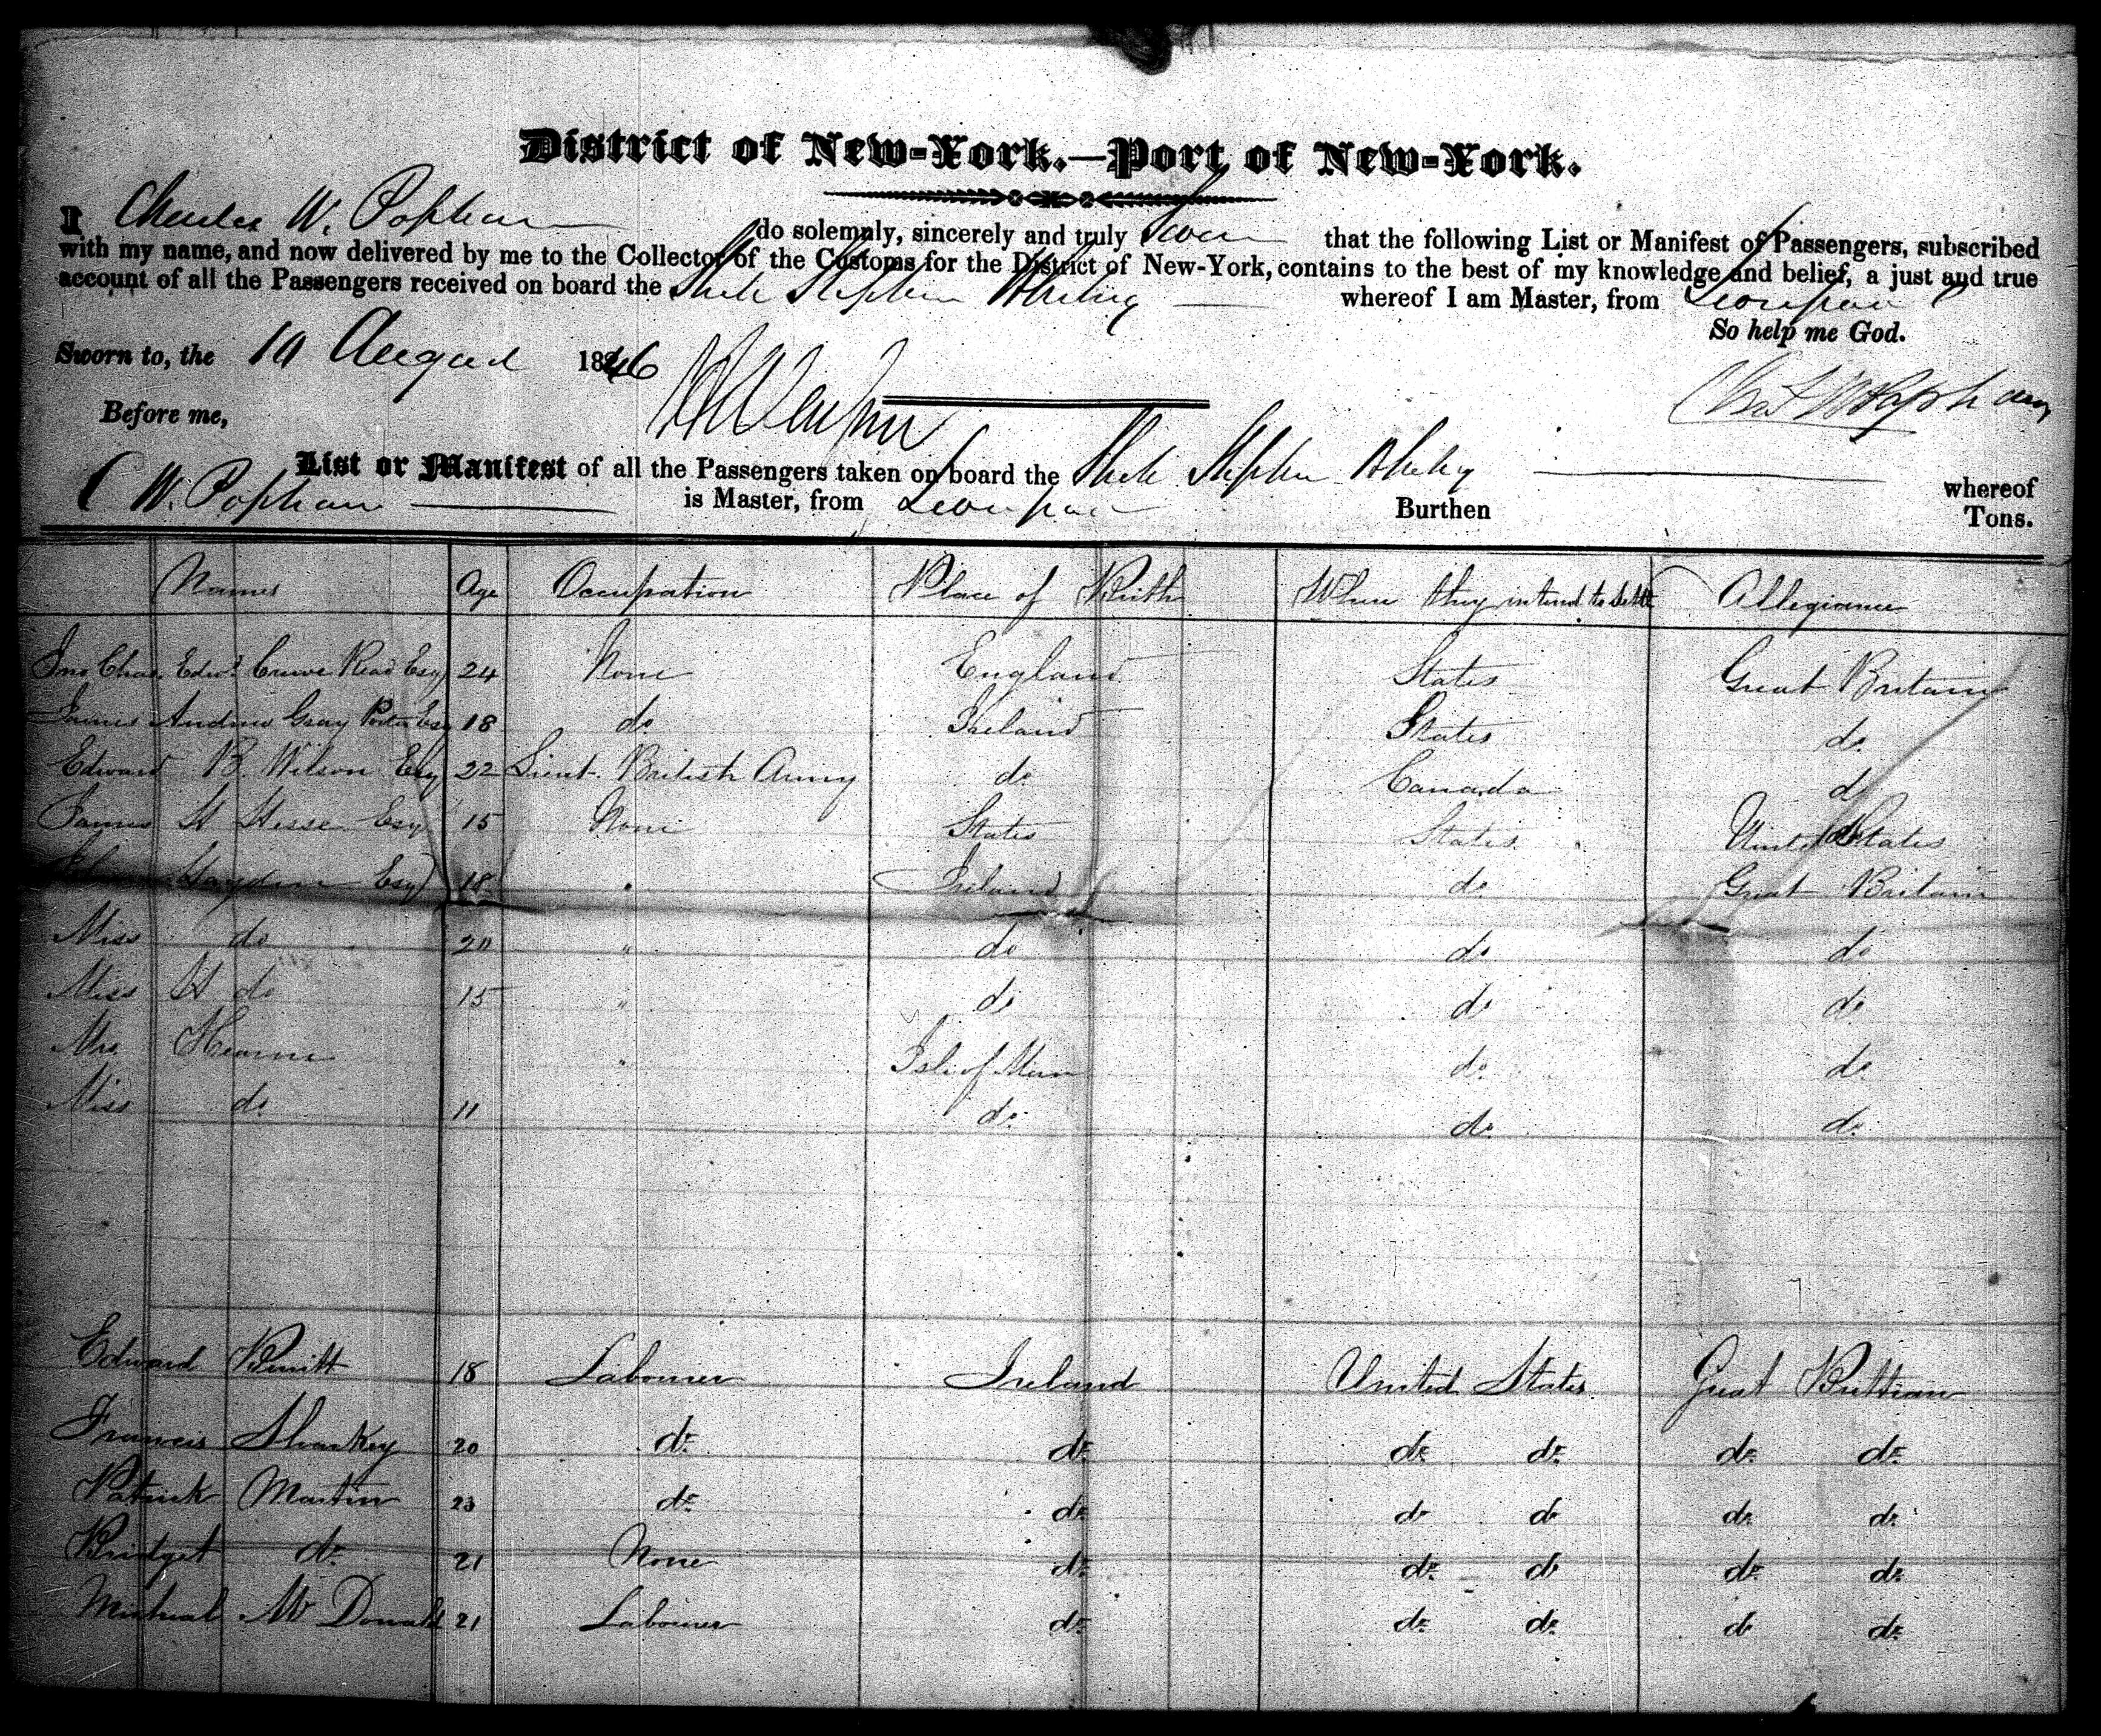 District of New-York.—Port of New-York.
I Charles W. Popham do solemnly, sincerely and truly Swear that the following List or Manifest of Passengers, subscribed
with my name, and now delivered by me to the Collector of the Customs for the District of New-York, contains to the best of my knowledge and belief, a just and true
account of all the Passengers received on board the Ship Stephen Whitney whereof I am Master, from Liverpool
So help me God.
Sworn to, the 10 August 1846
Before me,
Chas W Popham
List or Manifest of all the Passengers taken on board the Ship Stephen Whitney whereof
C W. Popham is Master, from Liverpool Burthen Tons.
Names Age Occupation Place of Birth Where they intend to settle Allegiance
Jno Chas. Edwd. Crewe Read Esq 24 None England States Great Britain
James Andrew Gray Porter Esq 18 do Ireland States do
Edward B. Wilson Esq 22 Lieut. British Army do Canada do
James H Hesse Esq 15 None States States United States
Haydin Esq 18 " Ireland do Great Britain
Miss do 20 " do do do
Miss H do 15 " do do do
Mrs Hearne " Isle of Man do do
Miss do 11 do do do
Edward 18 Labourer Ireland United States Great Brittian
Francis Sharkey 20 do do do do do do
Patrick Martin 23 do do do do do do
Bridget do 21 None do do do do do
Micheal McDonald 21 Labourer do do do do do